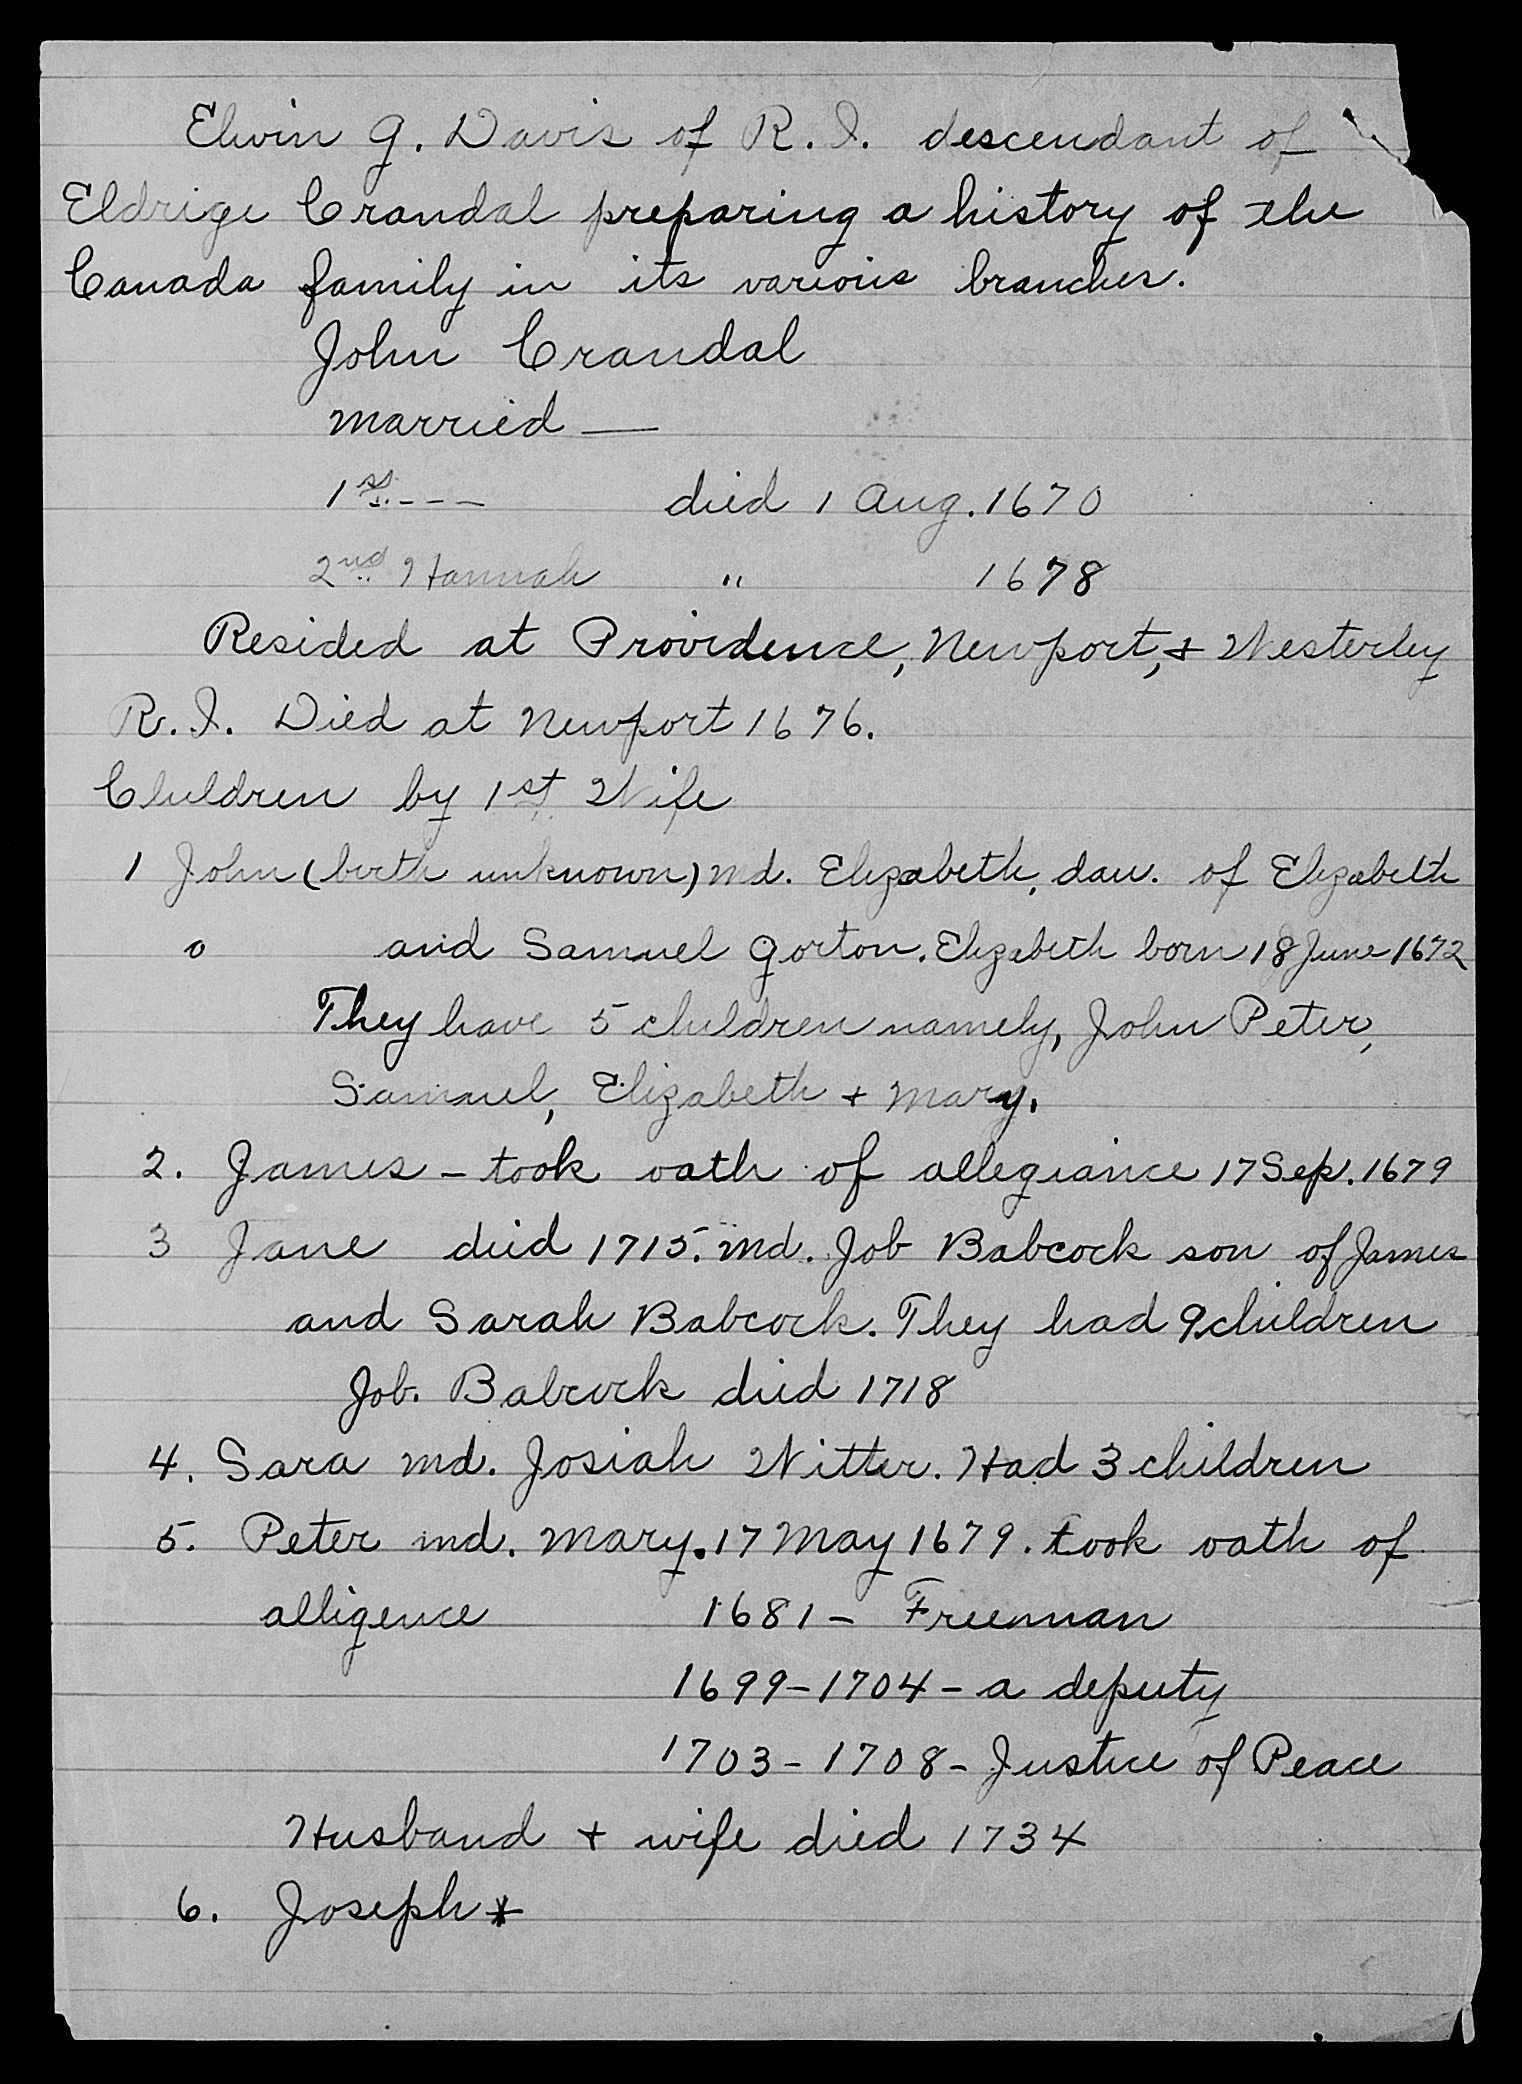 Elwin G. Davis of R. I. descendant of
Eldrige Crandal preparing a history of the
Canada family in its various branches.
John Crandal
married —
1st. - - - died 1 Aug. 1670
2nd. Hannah " 1678
Resided at Providence, Newport, + Westerley
R. I. Died at Newport 1676.
Children by 1st. Wife
1 John (birth unknown) md. Elizabeth, dau. of Elizabeth
o and Samuel Gorton. Elizabeth born 18 June 1672
They have 5 children namely, John Peter,
Samuel, Elizabeth + Mary.
2. James - took oath of allegiance 17 Sep. 1679
3 Jane died 1715. md. Job Babcock son of James
and Sarah Babcock. They had 9 children
Job. Babcock died 1718
4. Sara md. Josiah Witter. Had 3 children
5. Peter md. Mary. 17 May 1679. took oath of
alligence 1681 - Freeman
1699-1704 - a deputy
1703-1708 - Justice of Peace
Husband + wife died 1734
6. Joseph *